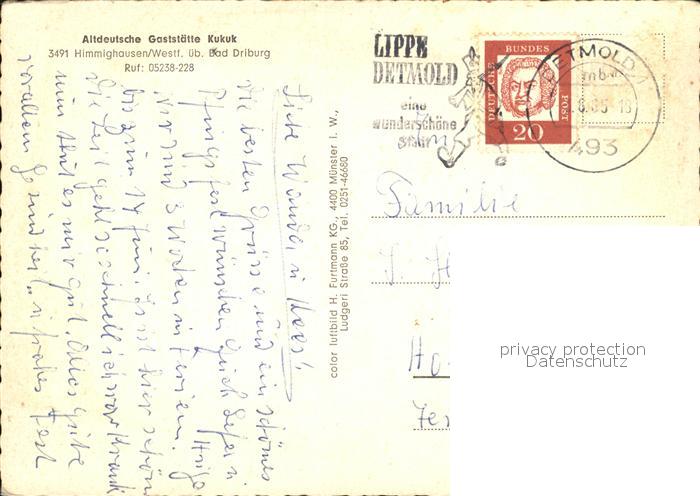 Altdeutsche Gaststätte Kukuk
3491 Himmighausen/Westf. üb. Bad Driburg
Ruf: 05238-228
LIPPE
DETMOLD
eine
wunderschöne
Stadt
DEUTSCHE
BUNDES
POST
20
DETMOLD
493
color luftbild H. Furtmann KG., 4400 Münster i. W.,
Ludgeri Straße 85, Tel. 0251-46680
Liebe Wanda, u
die besten Grüsse und ein schönes
Pfingstfest wünschen Euch
wir sind 3 Wochen in Ferien.
bis zum 14 Juni. Es ist hier schön
die Zeit geht so schnell ich war krank
nun geht es mir gut. Alles Gute
vor allem Gesundheit. u frohes Fest
Familie
privacy protection
Datenschutz